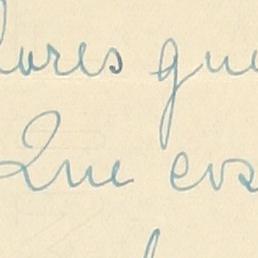 lores que
Que cos